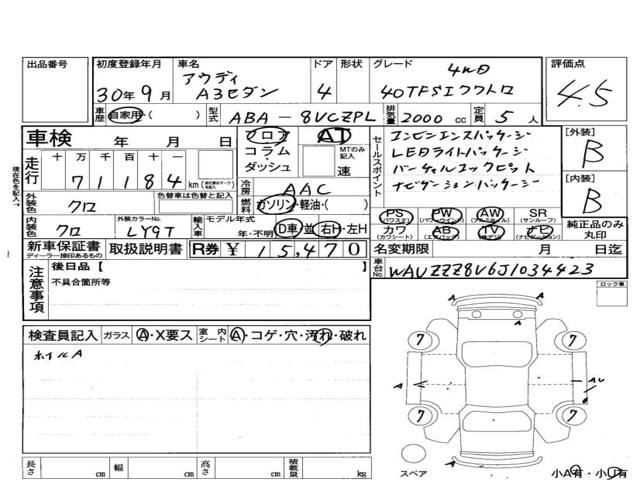 出品番号
初度登録年月
30年9月
車名
アウディ
A3セダン
ドア
4
形状
グレード
4WD
40TFSIクワトロ
評価点
4.5
車歴
自家用・( )
型式
ABA-8VCZPL
排気量
2000 cc
定員
5 人
車検 年 月 日
フロア
コラム・
ダッシュ
AT
MTのみ記入
速
セールスポイント
コンビニエンスパッケージ
LEDライトパッケージ
バーチャルコックピット
ナビゲーションパッケージ
[外装]
B
[内装]
B
走行
十 万 千 百 十 一
7 1 1 8 4 km
冷房
AAC
外装色
クロ
色替車は色替と記入
燃料
ガソリン・軽油・( )
PS
PW
AW
SR
(パワステ) (パワーウインドウ) (アルミホイール) (サンルーフ)
カワ
AB
TV
ナビ
(カワシート) (エアバッグ) (テレビ) (ナビゲーション)
純正品のみ
丸印
内装色
クロ
外装カラーNo.
LY9T
輸入車
モデル年式
年・不明
D車・並
右H・左H
新車保証書
ディーラー捺印あるもの
取扱説明書
R券 ¥ 15,470
名変期限 月 日迄
車台No.
WAUZZZ8V6J1034423
注意事項
後日品 [ ]
不具合箇所等
ロック車
検査員記入
ガラス
A・X要ス
室内シート
A・コゲ・穴・汚れ・破れ
ホイルA
A
A A
7 7
A A AU
7 7
A
スペア
小A有・小U有
長さ cm
幅 cm
高さ cm
積載量 kg
現在色を記入→